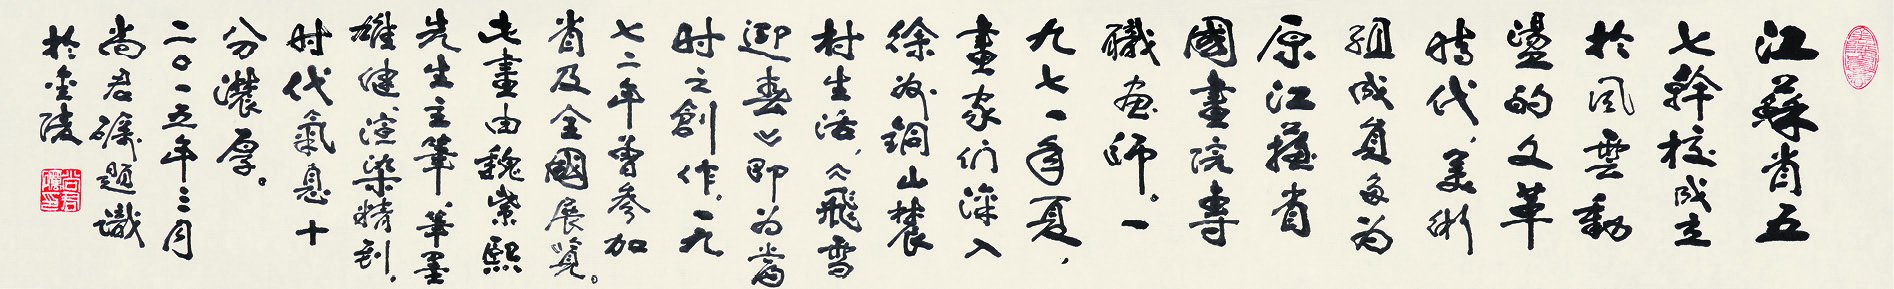 江蘇省五
七幹校成立
於风雲動
盪的文革
時代，美術
組成員多为
原江蘇省
國畫院專
職画師。一
九七一年夏，
畫家们深入
徐州銅山農
村生活，《飛雪
迎春》即为當
时之創作，一九
七二年曾参加
省及全國展覽。
此畫由魏紫熙
先生主筆，筆墨
雄健，渲染精到，
时代氣息十
分濃厚。
二〇一五年三月
尚君礪题識
於金陵